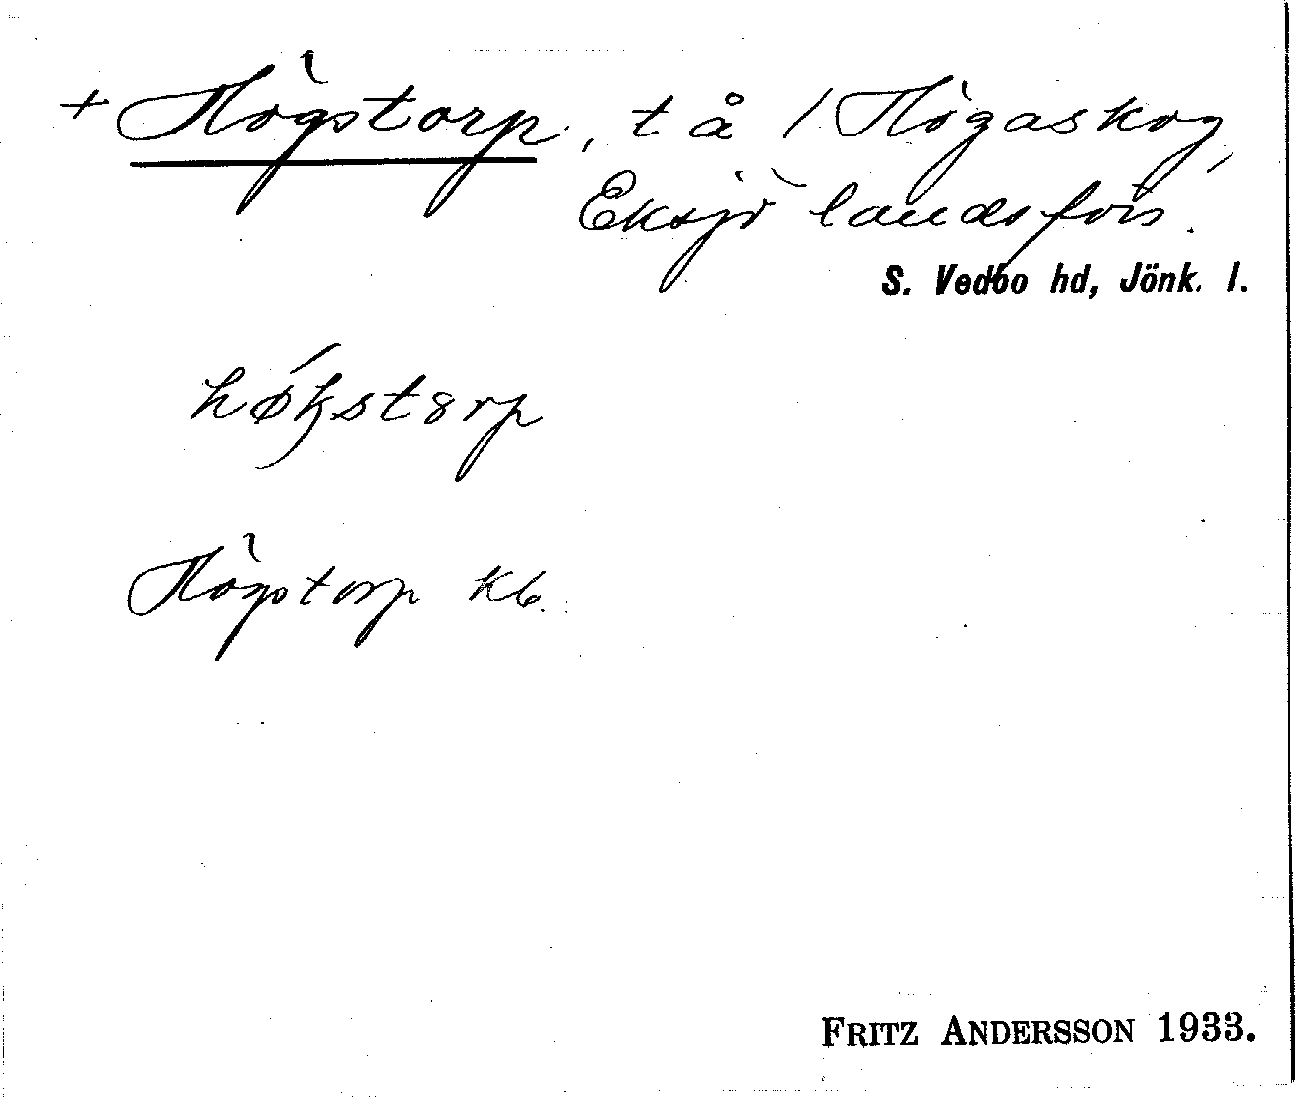 + Högstorp, t å / Högaskog,
Eksjö landsförs.
S. Vedbo hd, Jönk. l.
høkstorp
Högstorp Kb.
FRITZ ANDERSSON 1933.